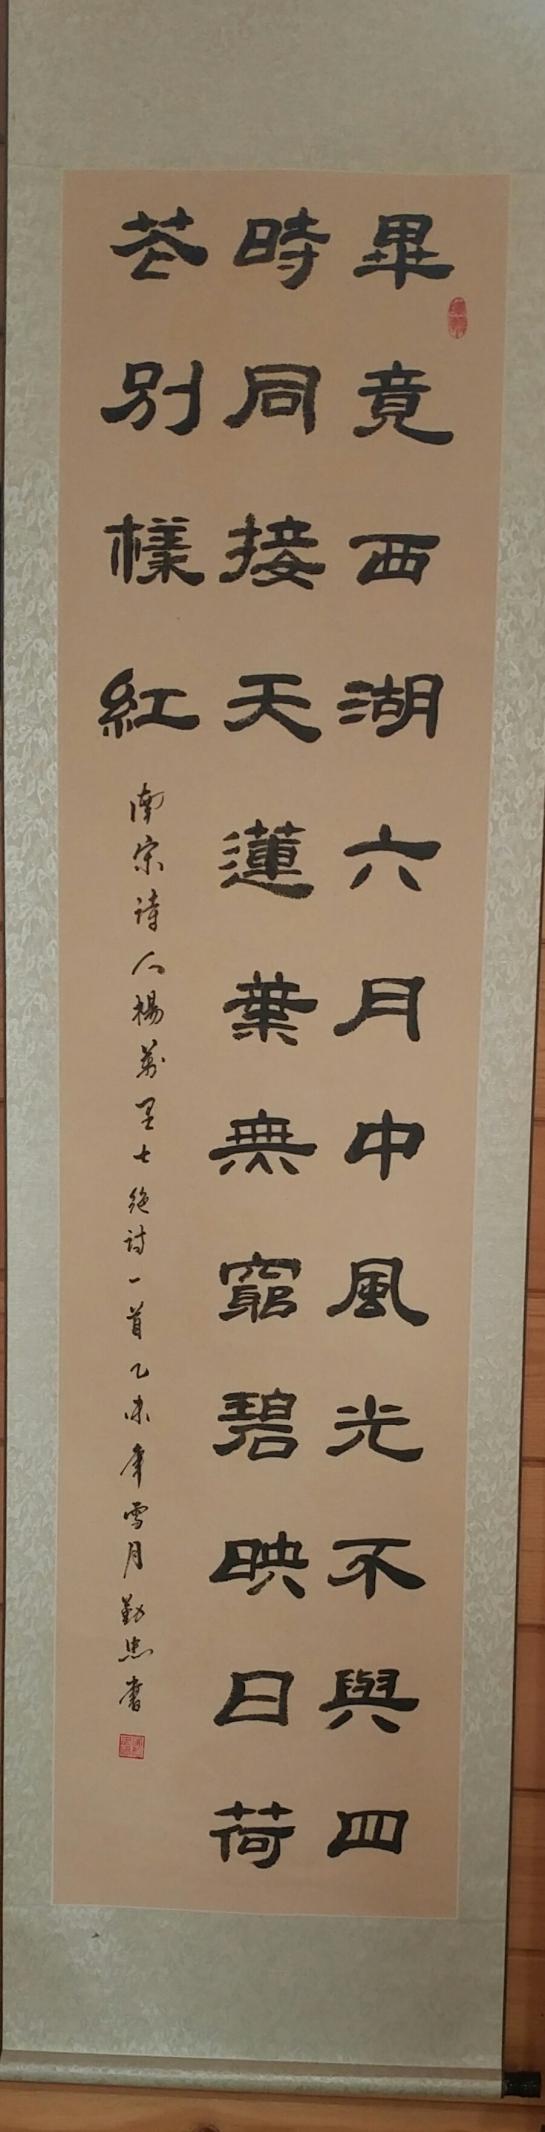 畢竟西湖六月中風光不與四
時同接天蓮葉無窮碧映日荷
花別樣紅
南宋詩人楊萬里七絕詩一首乙未年雪月勤忠書